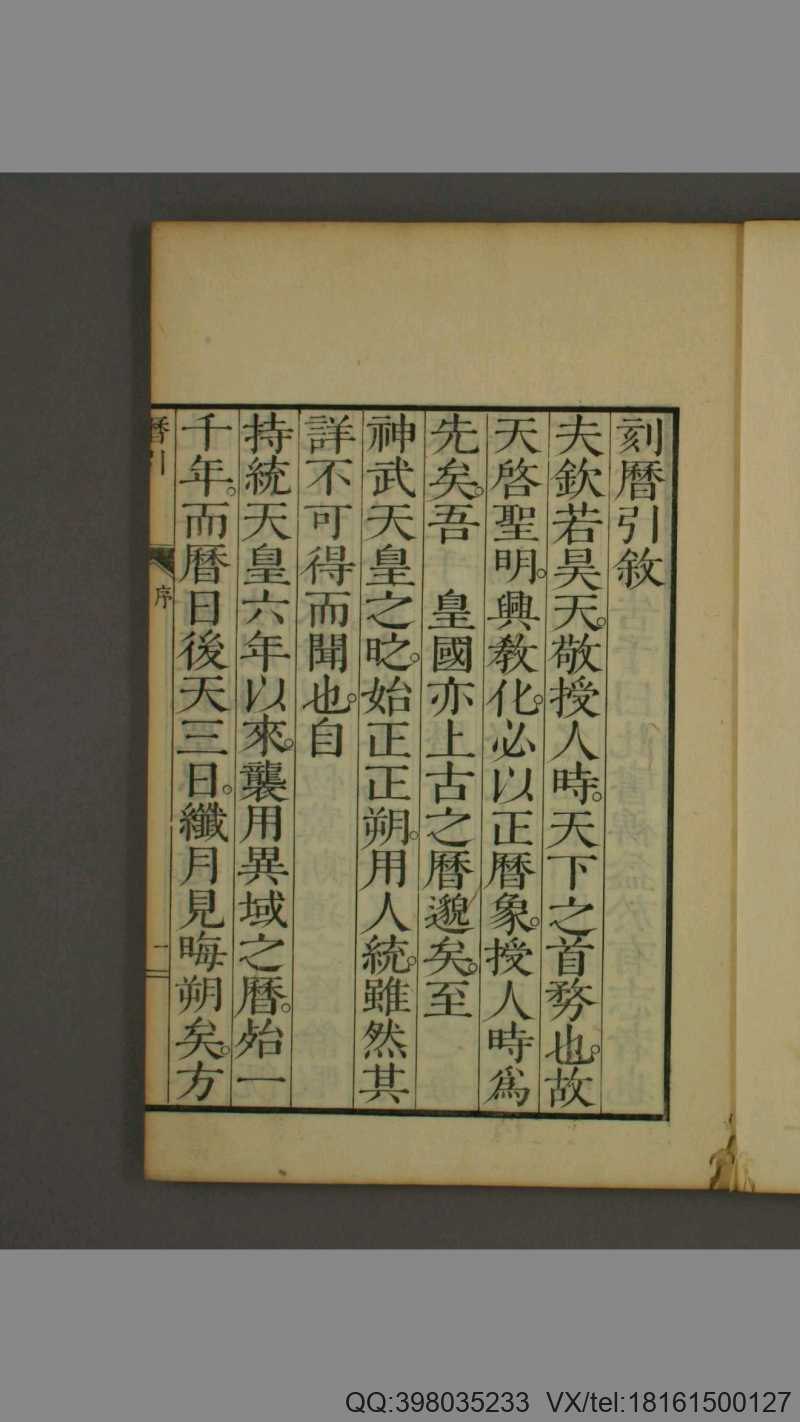 刻曆引敘
夫欽若昊天。敬授人時。天下之首務也。故
天啓聖明。興教化。必以正曆象。授人時爲
先矣。吾　皇國亦上古之曆邈矣。至
神武天皇之時。始正正朔。用人統。雖然其
詳不可得而聞也。自
持統天皇六年以來。襲用異域之曆。殆一
千年。而曆日後天三日。纖月見晦朔矣。方
曆引
序
一
QQ:398035233 VX/tel:18161500127